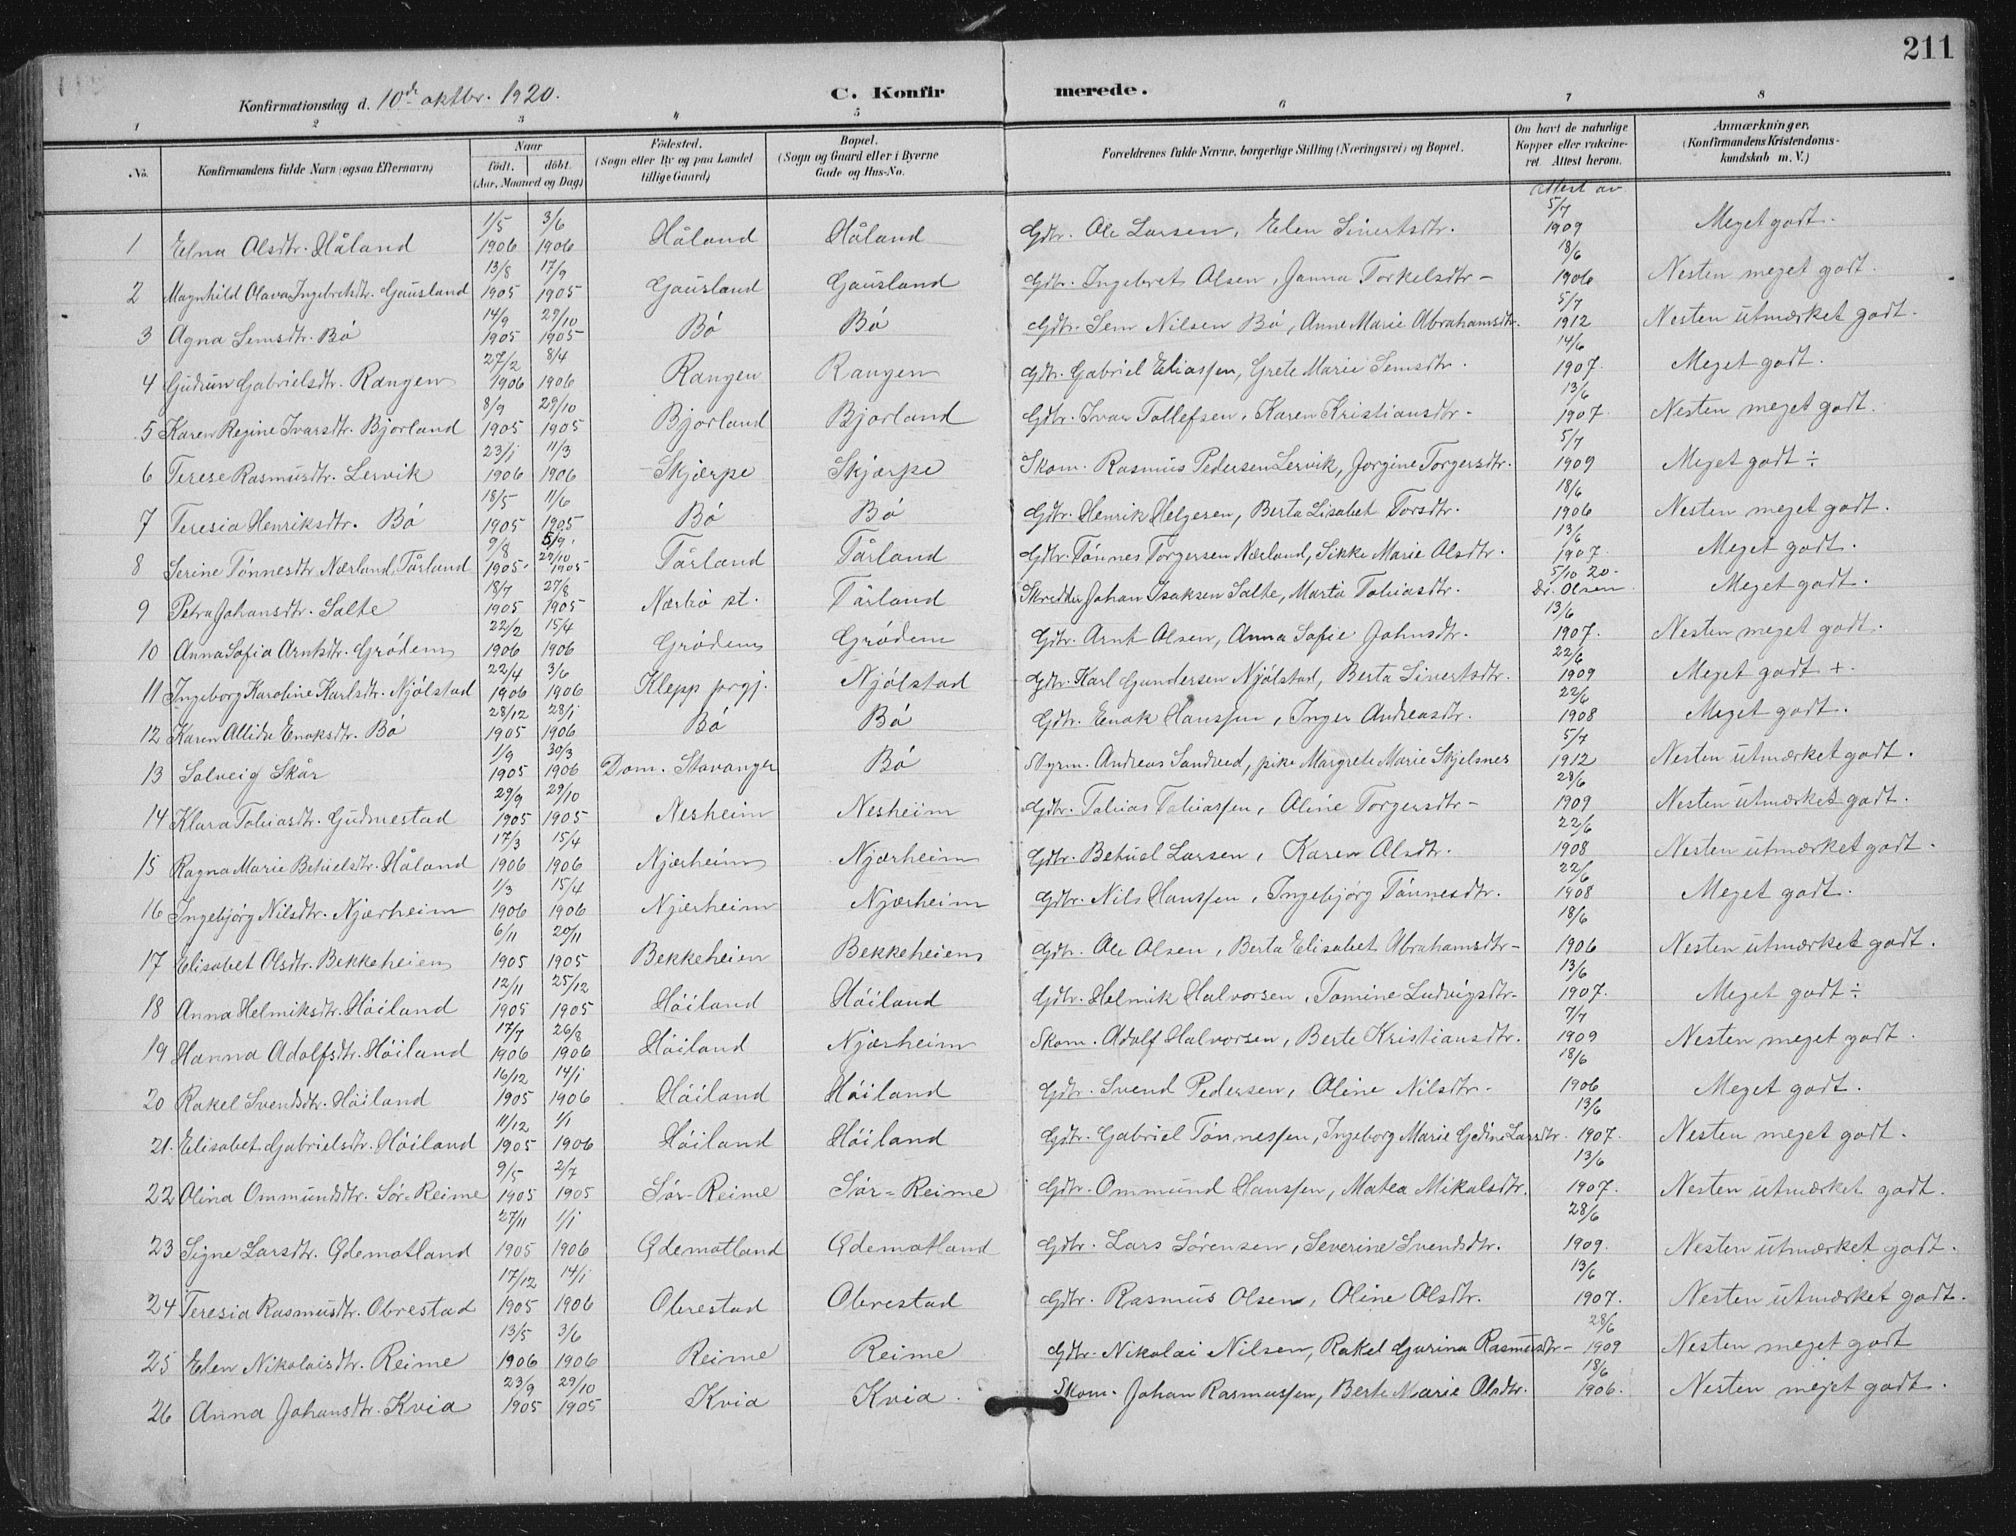 211
Konfirmationsdag d. 10de oktbr. 1920. C. Konfirmerede.
1 2 3 4 5 6 7 8
No. Konfirmandens fulde Navn (ogsaa Efternavn) Naar født. døbt. (Aar, Maaned og Dag) Fødested. (Sogn eller By og paa Landet tillige Gaard) Bopæl. (Sogn og Gaard eller i Byerne Gade og Hus-No. Forældrenes fulde Navne, borgerlige Stilling (Næringsvei) og Bopæl. Om havt de naturlige Kopper eller vaccineret. Attest herom. Anmærkninger. (Konfirmandens Kristendomskundskab m. V.)
Attest av
1 Elna Olsdtr. Håland 1/5 1906 3/6 1906 Håland Håland Gdbr. Ole Larsen, Elen Sivertsdtr. 5/7 1909 Meget godt.
2 Magnhild Olava Ingebretsdtr. Gausland 13/8 1905 17/9 1905 Gausland Gausland Gdbr. Ingebret Olsen, Janna Torkelsdtr - 18/6 1906 Nesten meget godt.
3 Agna Semsdtr. Bø 14/9 1905 29/10 1905 Bø Bø Gdbr. Sem Nilsen Bø, Anne Marie Abrahamsdtr. 5/7 1912 Nesten utmærket godt.
4 Gudrun Gabrielsdtr. Rangen 27/2 1906 8/4 1906 Rangen Rangen Gdbr. Gabriel Eliassen, Grete Marie Semsdtr. 14/6 1907. Meget godt.
5 Karen Regine Ivarsdtr. Bjorland 8/9 1905 29/10 1905 Bjorland Bjorland Gdbr. Ivar Tollefsen, Karen Kristiansdtr - 13/6 1907 Nesten meget godt.
6 Terese Rasmusdtr. Lervik 23/1 1906 11/3 1906 Skjærpe Skjærpe Skom. Rasmus Pedersen Lervik, Jorgine Torgersdtr. 5/7 1909 Meget godt ÷
7 Teresia Henriksdtr. Bø 18/5 1905 11/6 1905 Bø Bø Gdbr. Henrik Helgesen, Berta Lisabet Torsdtr. 18/6 1906 Nesten meget godt.
8 Serine Tønnesdtr Nærland, Tårland 9/8 1905. 5/9. 29/10 1905 Tårland Tårland Gdbr. Tønnes Torgersen Nærland, Sikke Marie Olsdtr. 13/6 1907. Meget godt.
9 Petra Johansdtr. Salte 18/7 1905 27/8 1905 Nærbø st. Tårland Skredder Johan Isaksen Salte, Marta Tobiasdtr. 5/10 20. Dr. Olsen Meget godt.
10 Anna Sofia Arntsdtr. Grødem 22/2 1906 15/4 1906 Grødem Grødem Gdbr. Arnt Olsen, Anna Sofie Johnsdtr. 13/6 1907. Nesten meget godt.
11 Ingeborg Karoline Karlsdtr. Njølstad 22/4 1906 3/6 1906 Klepp prgj. Njølstad Gdbr. Karl Gundersen Njølstad, Berta Sivertsdtr. 22/6 1909 Meget godt +.
12 Karen Allida Enoksdtr. Bø 28/12 1905 28/1 1906 Bø Bø Gdbr. Enok Hanssen, Inger Andreasdtr. 22/6 1908 Meget godt.
13 Solveig Skår 1/9 1905 30/3 1906 Dom. Stavanger Bø Styrm. Andreas Sandved, pike Margrete Marie Skjelsnes 5/7 1912 Nesten utmærket godt.
14 Klara Tobiasdtr. Gudmestad 29/9 1905 29/10 1905 Nesheim Nesheim Gdbr. Tobias Tobiassen, Oline Torgersdtr - 28/6 1909 Nesten utmærket godt.
15 Ragna Marie Betuelsdtr. Håland 17/3 1906 15/4 1906 Njærheim Njærheim Gdbr. Betuel Larsen, Karen Olsdtr. 22/6 1908 Nesten utmærket godt.
16 Ingebjørg Nilsdtr. Njærheim 1/3 1906 15/4 1906 Njærheim Njærheim Gdbr. Nils Hanssen, Ingebjørg Tønnesdtr. 22/6 1908 Meget godt.
17 Elisabet Olsdtr. Bekkeheien 6/11 1905 20/11 1905 Bekkeheien Bekkeheien Gdbr. Ole Olsen, Berta Elisabet Abrahamsdtr - 18/6 1906 Nesten utmærket godt.
18 Anna Helmiksdtr. Høiland 12/11 1905 25/12 1905 Høiland Høiland Gdbr. Helmik Halvorsen, Tomine Ludvigsdtr - 13/6 1907. Meget godt ÷
19 Hanna Adolfsdtr. Høiland 17/7 1906 26/8 1906 Høiland Njærheim Skom. Adolf Halvorsen, Berte Kristiansdtr. 7/7 1909 Nesten meget godt.
20 Rakel Svendsdtr. Høiland 16/12 1905 14/1 1906 Høiland Høiland Gdbr. Svend Pedersen, Oline Nilsdtr. 18/6 1906 Meget godt.
21. Elisabet Gabrielsdtr. Høiland 11/12 1905 1/1 1906 Høiland Høiland Gdbr. Gabriel Tønnessen, Ingeborg Marie Gedine Larsdtr. 13/6 1907. Nesten meget godt.
22 Olina Ommundsdtr. Sør-Reime 9/5 1905 2/7 1905 Sør-Reime Sør-Reime Gdbr. Ommund Hanssen, Matea Mikalsdtr. 13/6 1907. Nesten utmærket godt.
23 Signe Larsdtr. Ødemotland 27/11 1905 1/1 1906 Ødemotland Ødemotland Gdbr. Lars Sørensen, Severine Svendsdtr. 28/6 1909. Nesten utmærket godt.
24 Teresia Rasmusdtr. Obrestad 17/12 1905 14/1 1906 Obrestad Obrestad Gdbr. Rasmus Olsen, Oline Olsdtr. 13/6 1907. Nesten utmærket godt.
25 Elen Nikolaisdtr. Reime 13/5 1906 3/6 1906 Reime Reime Gdbr. Nikolai Nilsen, Rakel Gurina Rasmusdtr - 28/6 1909 Nesten meget godt
26 Anna Johansdtr. Kvia 23/9 1905 29/10 1905 Kvia Kvia. Skom. Johan Rasmussen, Berte Marie Olsdtr. 18/6 1906. Nesten meget godt.